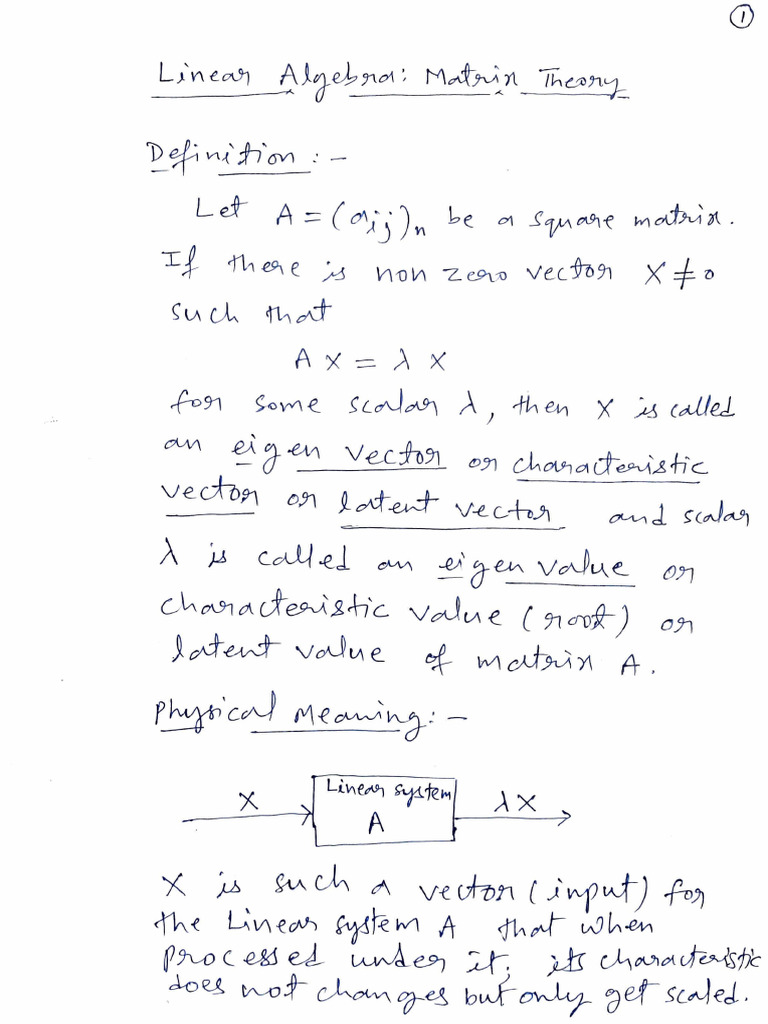 ①
Linear Algebra: Matrix Theory
Definition :-
Let A = (aij)n be a square matrix.
If there is non zero vector X ≠ 0
such that
A X = λ X
for some scalar λ, then X is called
an eigen vector or characteristic
vector or latent vector and scalar
λ is called an eigen value or
characteristic value (root) or
latent value of matrix A.
Physical Meaning: -
X
Linear system
A
λX
X is such a vector (input) for
the Linear system A that when
processed under it, its characteristic
does not changes but only get scaled.